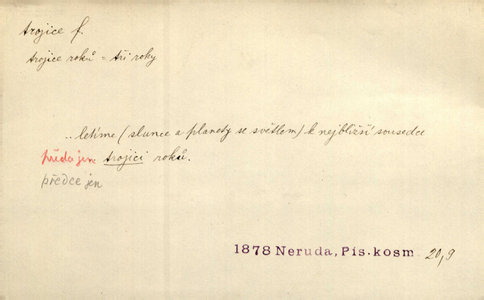 trojice f.
trojice roků = tři roky
..letíme (slunce a planety se světlem) k nejbližší sousedce
předc jen trojici roků.
předce jen
1878 Neruda, Pís. kosm 20,9